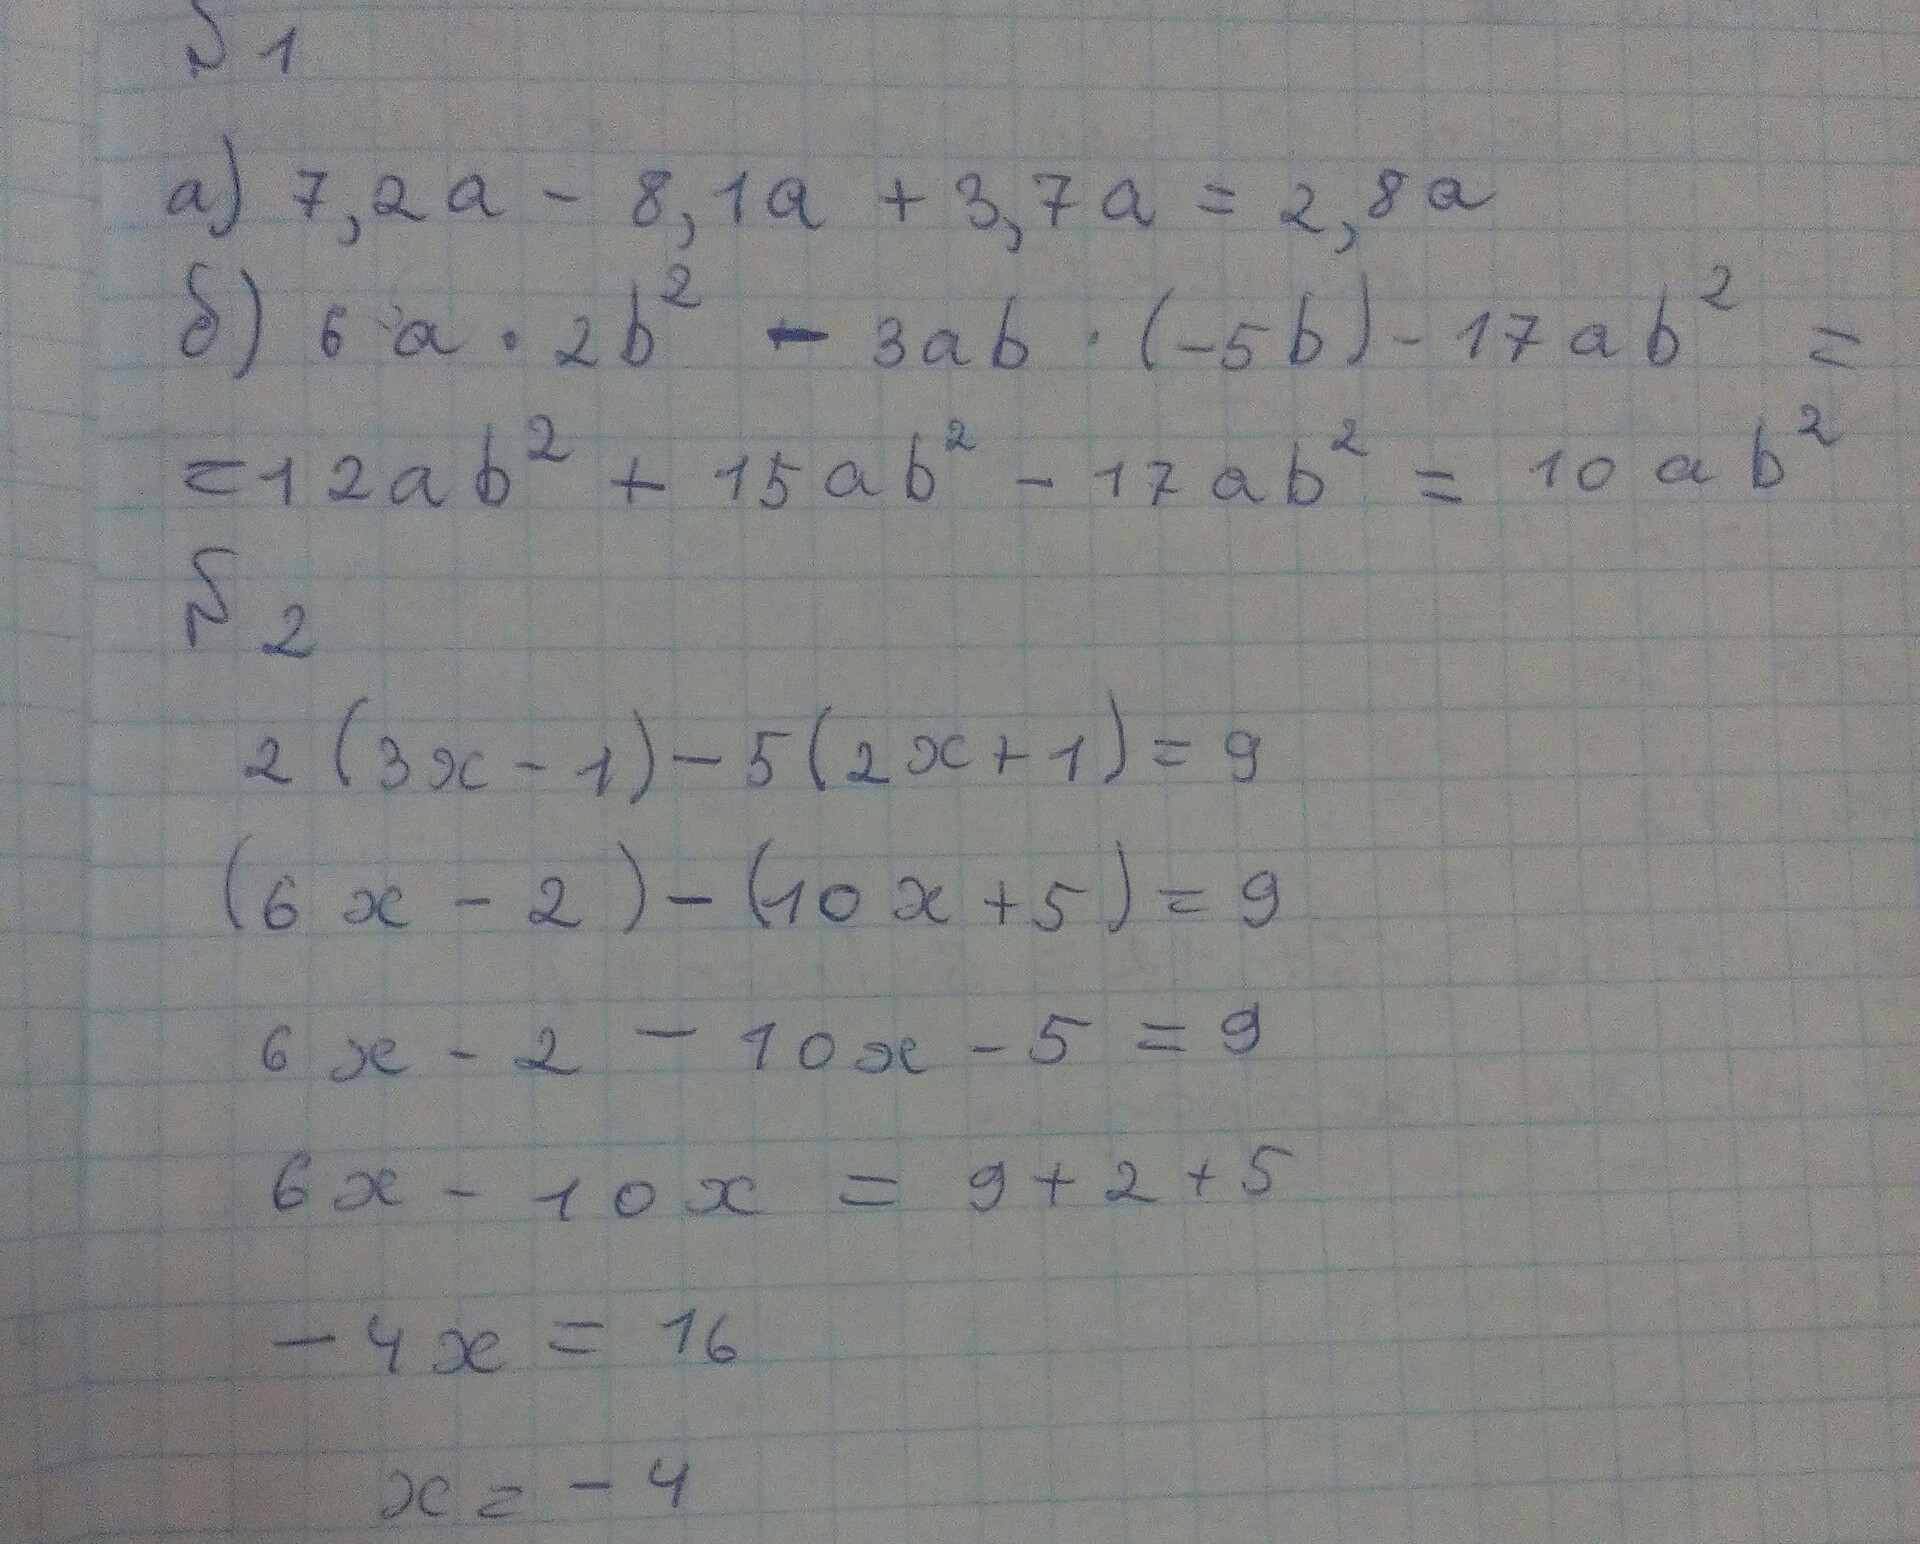 №1
а) 7,2a - 8,1a + 3,7a = 2,8a
б) 6a · 2b² - 3ab · (-5b) - 17ab² =
= 12ab² + 15ab² - 17ab² = 10ab²
№2
2(3x - 1) - 5(2x + 1) = 9
(6x - 2) - (10x + 5) = 9
6x - 2 - 10x - 5 = 9
6x - 10x = 9 + 2 + 5
-4x = 16
x = -4